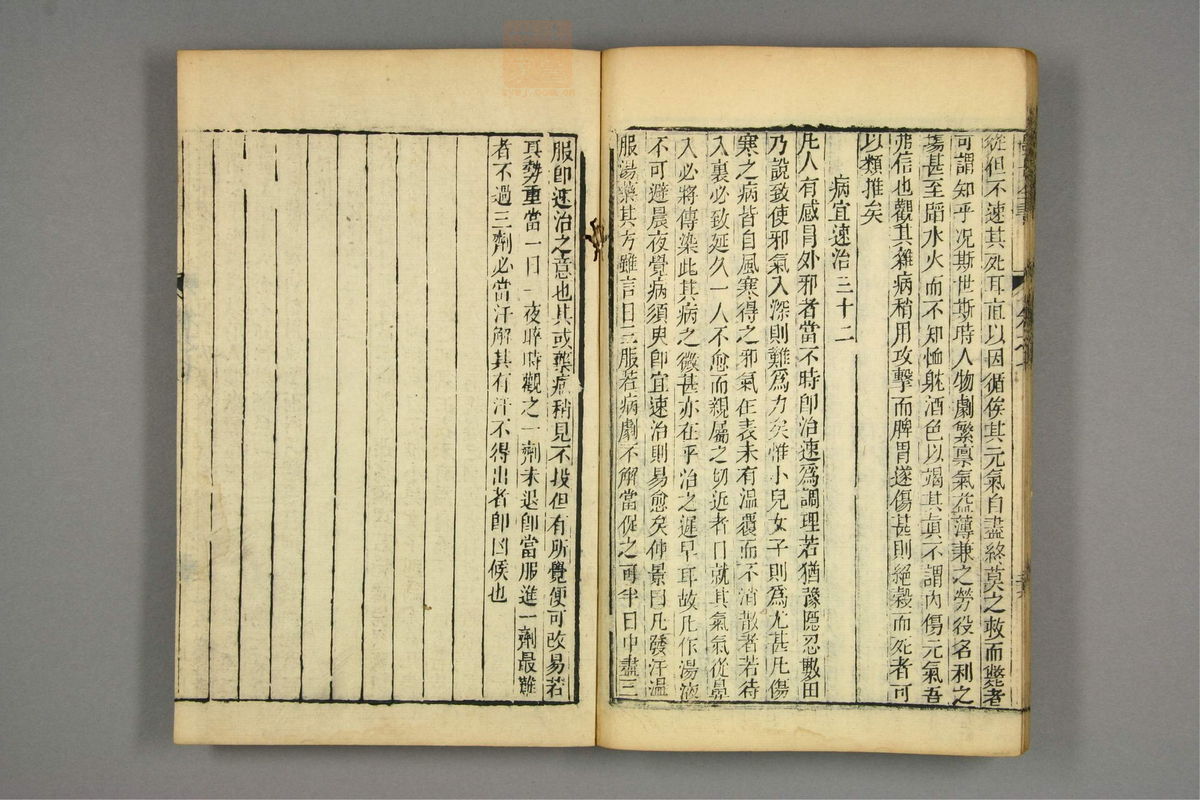 綂但不速其死耳直以因循俟其元氣自盡終莫之救而斃者
可謂知乎况斯世斯時人物劇繁禀氣益薄兼之勞役名利之
塲甚至蹈水火而不知恤躭酒色以竭其眞不謂内傷元氣吾
弗信也觀其雜病稍用攻擊而脾胃遂傷甚則絕穀而死者可
以類推矣
病宜速治三十二
凡人有感冒外邪者當不時卽治速爲調理若猶豫隱忍數日
乃說致使邪氣入深則難爲力矣惟小兒女子則爲尤甚凡傷
寒之病皆自風寒得之邪氣在表未有溫覆而不消散者若待
入裏必致延久一人不愈而親屬之切近者日就其氣氣從鼻
入必將傳染此其病之微甚亦在乎治之遲早耳故凡作湯液
不可避晨夜覺病須臾卽宜速治則易愈矣仲景曰凡發汗温
服湯藥其方雖言日三服若病劇不解當促之可半日中盡三
服卽速治之意也其或藥病稍見不投但有所覺便可改易若
其勢重當一日一夜晬時觀之一劑未退卽當服進一劑最難
者不過三劑必當汗解其有汗不得出者卽凶候也